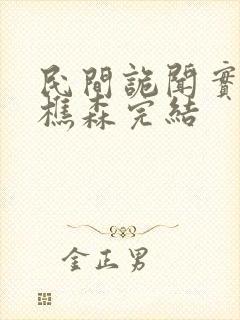 民間詭聞實
樵森完結
金正男